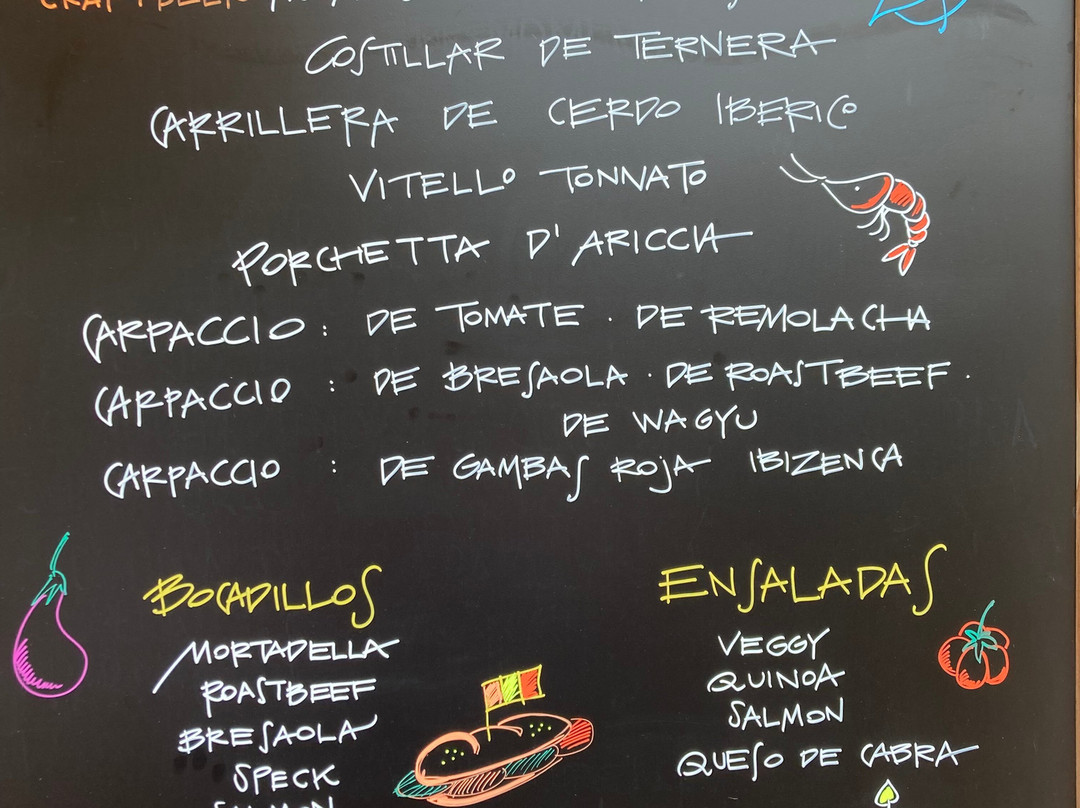 COSTILLAR DE TERNERA
CARRILLERA DE CERDO IBERICO
VITELLO TONNATO
PORCHETTA D'ARICCIA
CARPACCIO: DE TOMATE · DE REMOLACHA
CARPACCIO : DE BRESAOLA · DE ROASTBEEF ·
DE WAGYU
CARPACCIO : DE GAMBAS ROJA IBIZENCA
BOCADILLOS
MORTADELLA
ROASTBEEF
BRESAOLA
SPECK
SALMON
ENSALADAS
VEGGY
QUINOA
SALMON
QUESO DE CABRA